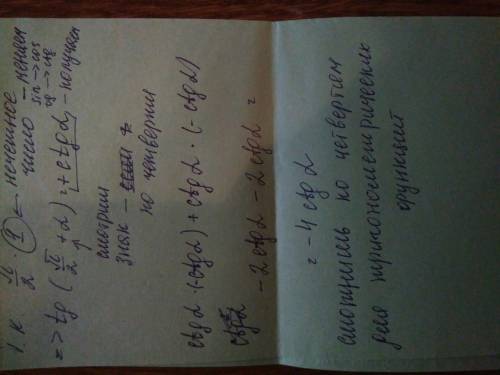 1. к. π/2 (1) ← нечетное
число – меняем
sin → cos
tg → ctg
=> tg (π/2 + α) = + ctg α – получаем
смотрим
знак –
по четверти
ctg α · (-ctg α) + ctg α · (-ctg α)
-2 ctg α - 2 ctg α =
= -4 ctg α
смотришь по четвертям
для тригонометрических
функций